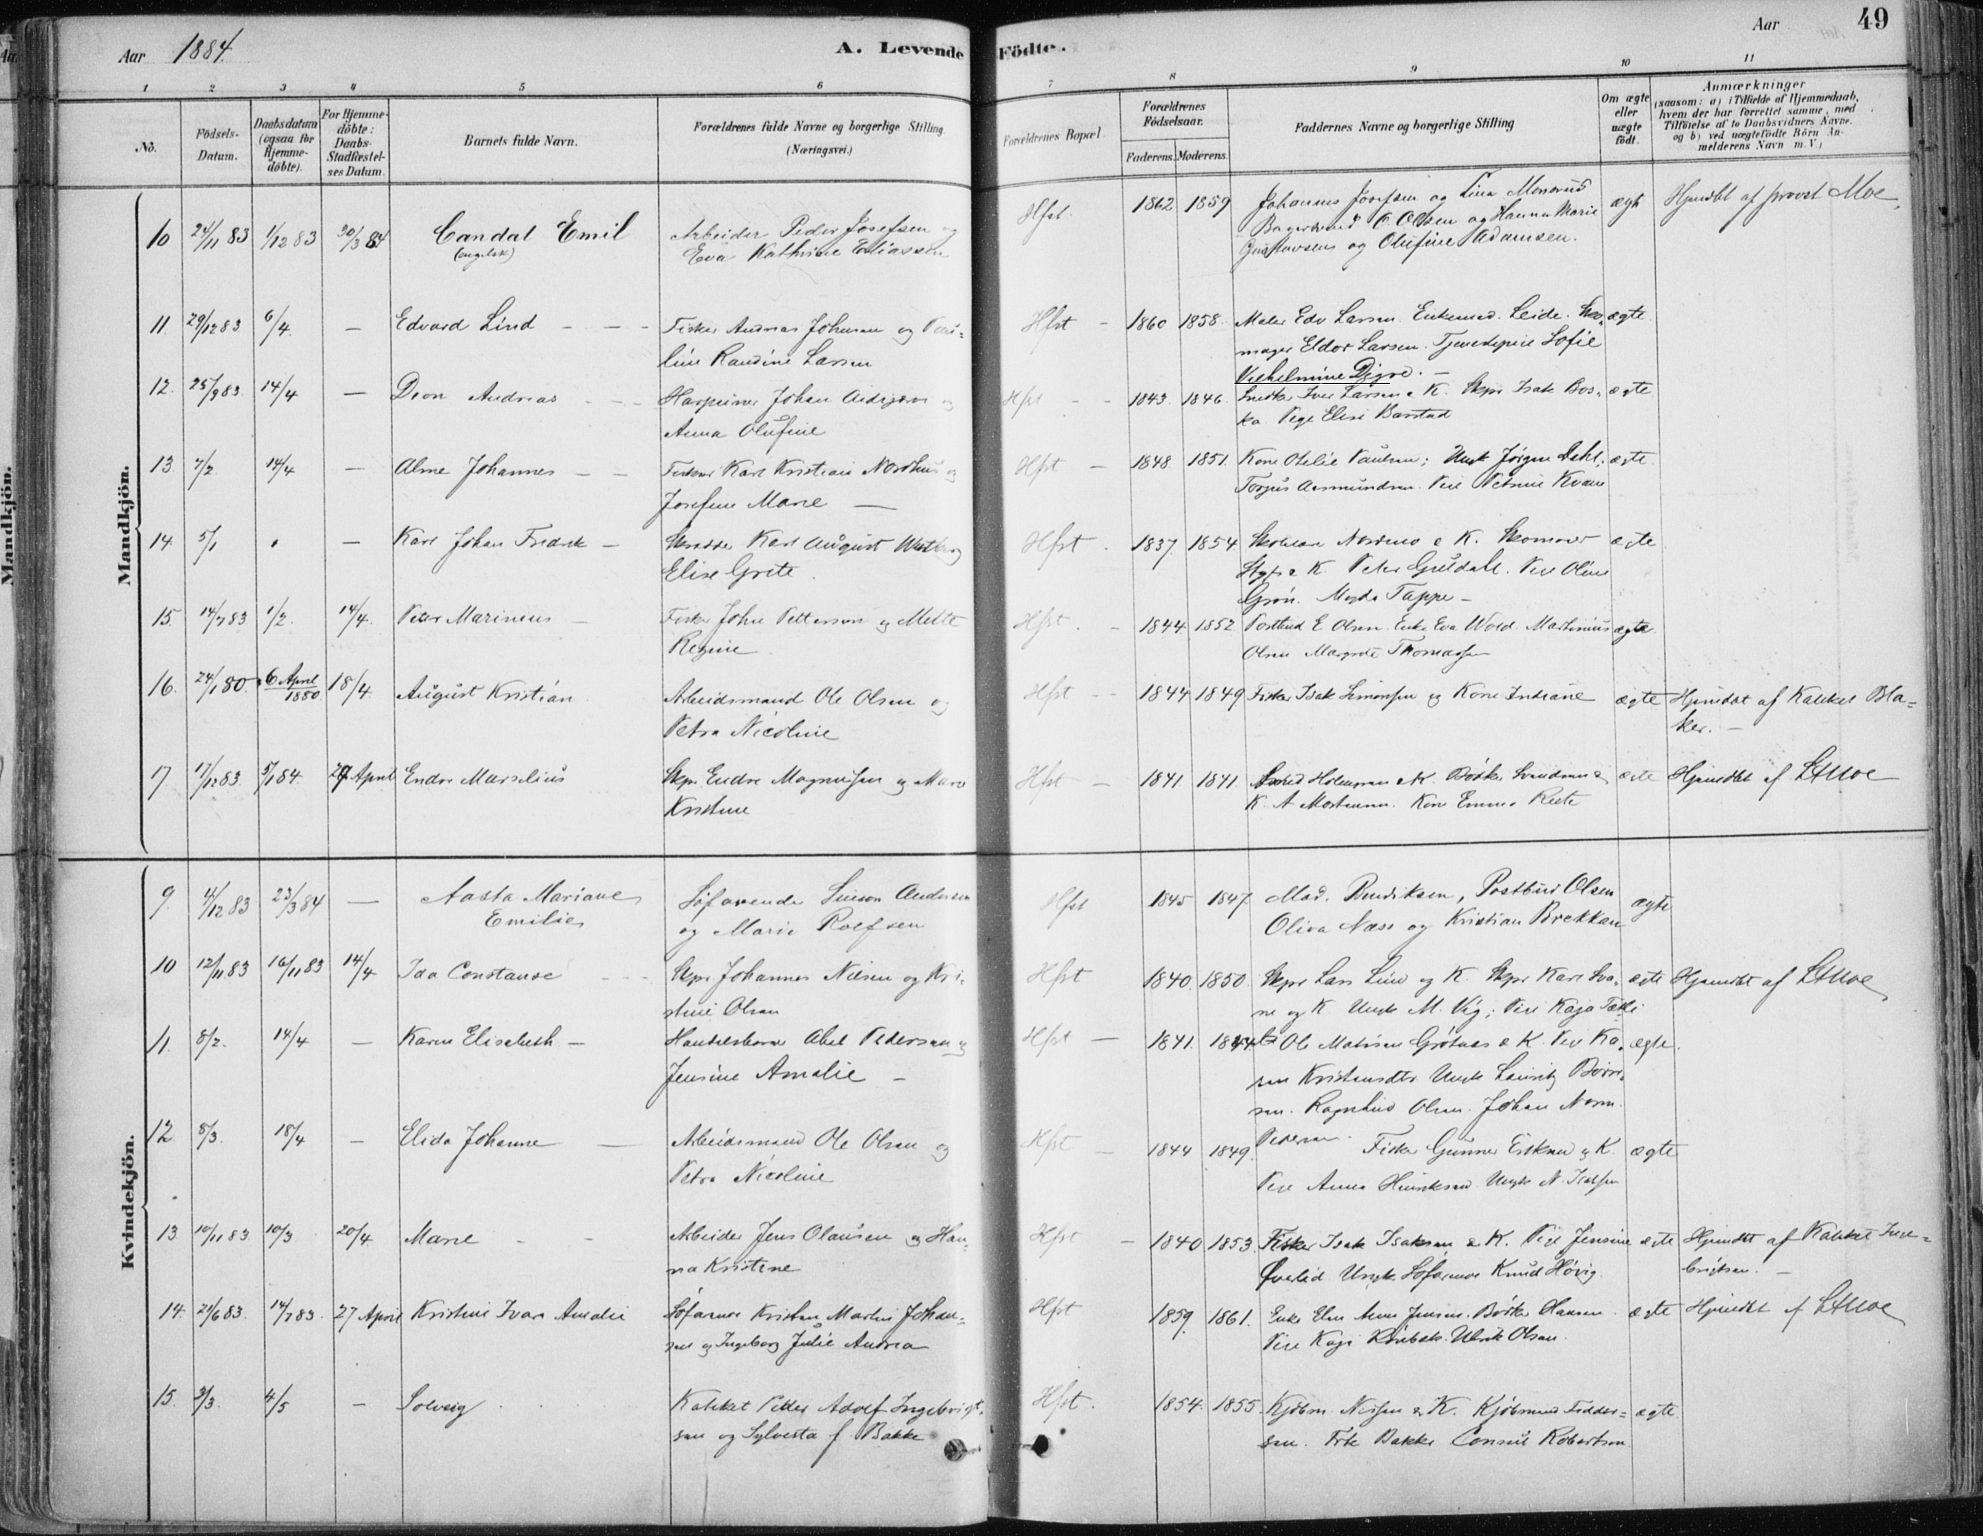 Aar 1884.
A. Levende Födte.
Aar
49
1 2 3 4 5 6 7 8 9 10 11
No.
Födsels-
Datum.
Daabsdatum
(ogsaa for
Hjemme-
döbte).
For Hjemme-
döbte:
Daabs-
Stadfæstel-
ses Datum.
Barnets fulde Navn.
Forældrenes fulde Navne og borgerlige Stilling
(Næringsvei.)
Forældrenes Bopæl.
Forældrenes
Födselsaar.
Faderens. Moderens.
Faddernes Navne og borgerlige Stilling
Om ægte
eller
uægte
födt.
Anmærkninger
(saasom: a) i Tilfælde af Hjemmedaab,
hvem der har forrettet samme, med
Tilföielse af to Daabsvidners Navne.
og b) ved uægtefödte Börn An-
melderens Navn m. V.)
Mandkjön.
Mandkjön.
10 24/11 83 1/12 83 30/3 84 Candal Emil
(engelsk)
Arbeider Peder Josefsen og
Eva Kathrine Eliassen
Hfst. 1862 1859 Johannes Josefsen og Lina
Olsen og Hanna Marie
Gustavsens og Olufine Adamsen.
ægte Hjemdbt af provst Moe
11. 29/12 83 6/4. — Edvard Lind — — —
Fisker Andreas Johnsen og Pau-
line Randine Larsen
Hfst — 1860 1858. Maler Edv Larsen. Enkemad. Leide. Sko-
mager Eldor Larsen. Tjenestepie Sofie
Vilhelmine Digre. —
ægte
12. 25/9 83. 14/4 — Dion Andreas
Harpuner Johan og
Anna Olufine
Hfst — — 1843. 1846. Snedk Iver Larsen & K. Skpr Isak Bos-
ka Pige Elise Barstad
ægte
13 7/2 14/4 — Alme Johannes — —
Fisker Karl Kristian Nordhus og
Josefine Marie —
Hfst — 1848. 1851. Kone Otelie Paulsen; Ungk Jörgen Dahl;
Torjus Aasmundsen. Pie Petrine Kvam
ægte
14. 5/1 — Karl Johan Fredrik —
Skrædder Karl August
Elise Grete.
Hfst. 1837 1854 Nordmo & K. Skomager
& K. Peter Guldahl. Pie Oline
Grön. Magda Tappe —
ægte
15. 14/7 83 1/2. 14/4. Peter Marinius —
Fisker John Pettersen og Mette
Regine.
Hfst. — 1844 1852 Postbud E Olsen. Enke Eva Wold. Martinius
Olsen Margrete Thomassen
ægte.
16. 24/1 80. 6 April
1880 18/4 August Kristian
Arbeidsmand Ole Olsen og
Petra Nicoline
Hfst — — 1844 1849 Fisker Isak Simonsen og Kone Indiane
ægte Hjemdbt af Kateket Bla-
ker. —
17 17/12 83 5/1 84 27 April Endre Marselius
Skpr. Endre Magnussen og Maren
Kristine
Hfst — 1841. 1841. Holmgren & K. Bödker
K. A Mortensen. Kone Emma
ægte Hjemdbt af LMoe
Kvindekjön.
9. 4/12 83 23/3 84 — Aasta Mariane
Emilie
Söfarende Simon Andersen
og Marie Roefsen
Hfst 1845 1847 Mad. Bendiksen, Postbud Olsen
Oliva Næss og Kristian Brekkan
ægte
10 12/11 83 16/11 83 14/4 Ida Constanse — —
Skpr Johannes Nilsen og Kri-
stine Olsen
Hfst 1840. 1850. Skpr Lars Lind og K. Skpr Karl Sva-
ne og K Ungk M. Vig; Pie Kaja
ægte Hjemdbt af LMoe
11. 8/2. 14/4 — Karen Elisabeth —
Handelsborer Abel Pedersen og
Jensine Amalie —
Hfst — 1841. 1844 Ole Matisen Grötnes & K. Pie Ka-
ren Kristensdtr Ungk Lauritz
sen. Ragnhild Olsen. Johan Norm.
Pedersen.
ægte.
12. 8/3. 18/4 — Elida Johanne —
Arbeidsmand Ole Olsen og
Petra Nicoline
Hfst — 1844 1849. Fisker Gunner Eriksen & K.
Pie Anna Henriksen Ungk N. Isaksen
ægte
13 10/11 83 10/3 20/4 Marie — —
Arbeider Jens Olausen og Han-
na Kristine
Hfst — 1840 1853 Fisker Isak Isaksen & K. Pige Jensine
Qvalid Ungk. Söfarende Knud Hövig.
ægte Hjemdbt af Kateket Inge-
brigtsen. —
14. 21/6 83. 14/7 83. 27 April Kristine Ivara Amalie
Söfarende Kristian Martin Johan-
sen og Ingeborg Julie Andrea
Hfst 1859 1861. Enke Elen Anna Jensen. Bödker Hansen
Pige Kaja Ulrik Olsen.
ægte Hjemdbt af LMoe
15. 3/3. 4/5 — Solveig
Kateket Peder Adolf Ingebrigt-
sen og Sylvesta f. Bakke
Hfst. 1854. 1855. Kjöbm. Nissen & K. Kjöbmand Fedder-
sen. Frk Bakke Consul Robertson
ægte